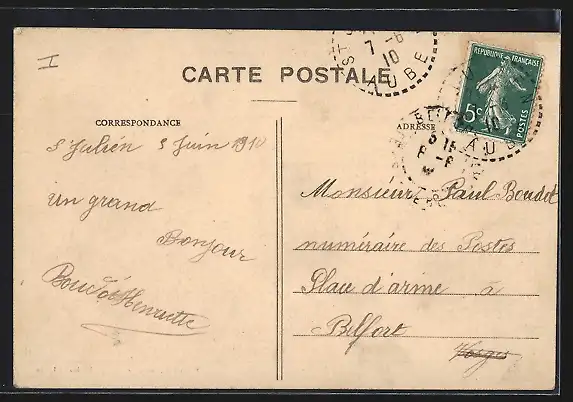 I
ST J
7 -6
10
AUBE
CARTE POSTALE
RÉPUBLIQUE FRANÇAISE
5c
POSTES
CORRESPONDANCE
ADRESSE
St Julien 5 Juin 1910
un grand
Bonjour
Boudot Henriette
Monsieur Paul Boudot
numéraire des Postes
Place d'arme à
Belfort
Vosges